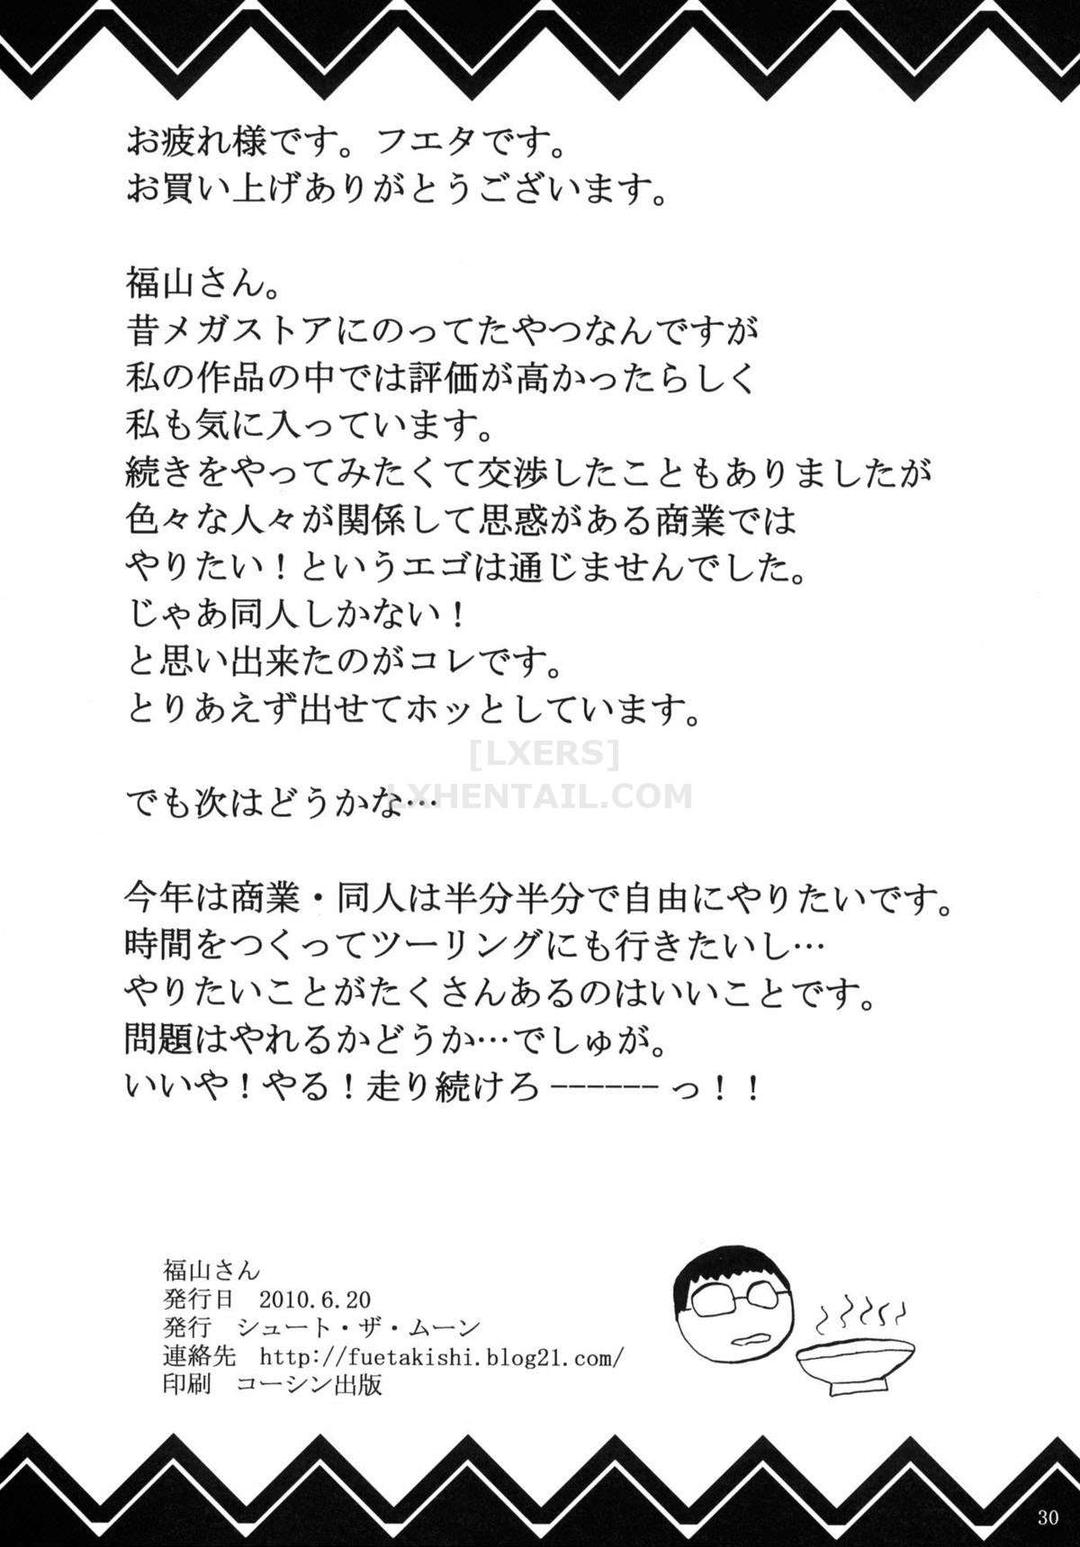 お疲れ様です。フエタです。
お買い上げありがとうございます。
福山さん。
昔メガストアにのってたやつなんですが
私の作品の中では評価が高かったらしく
私も気に入っています。
続きをやってみたくて交渉したこともありましたが
色々な人々が関係して思惑がある商業では
やりたい！というエゴは通じませんでした。
じゃあ同人しかない！
と思い出来たのがコレです。
とりあえず出せてホッとしています。
[LXERS]
LXHENTAIL.COM
でも次はどうかな…
今年は商業・同人は半分半分で自由にやりたいです。
時間をつくってツーリングにも行きたいし…
やりたいことがたくさんあるのはいいことです。
問題はやれるかどうか…でしゅが。
いいや！やる！走り続けろ------っ！！
福山さん
発行日　2010.6.20
発行　シュート・ザ・ムーン
連絡先　http://fuetakishi.blog21.com/
印刷　コーシン出版
30